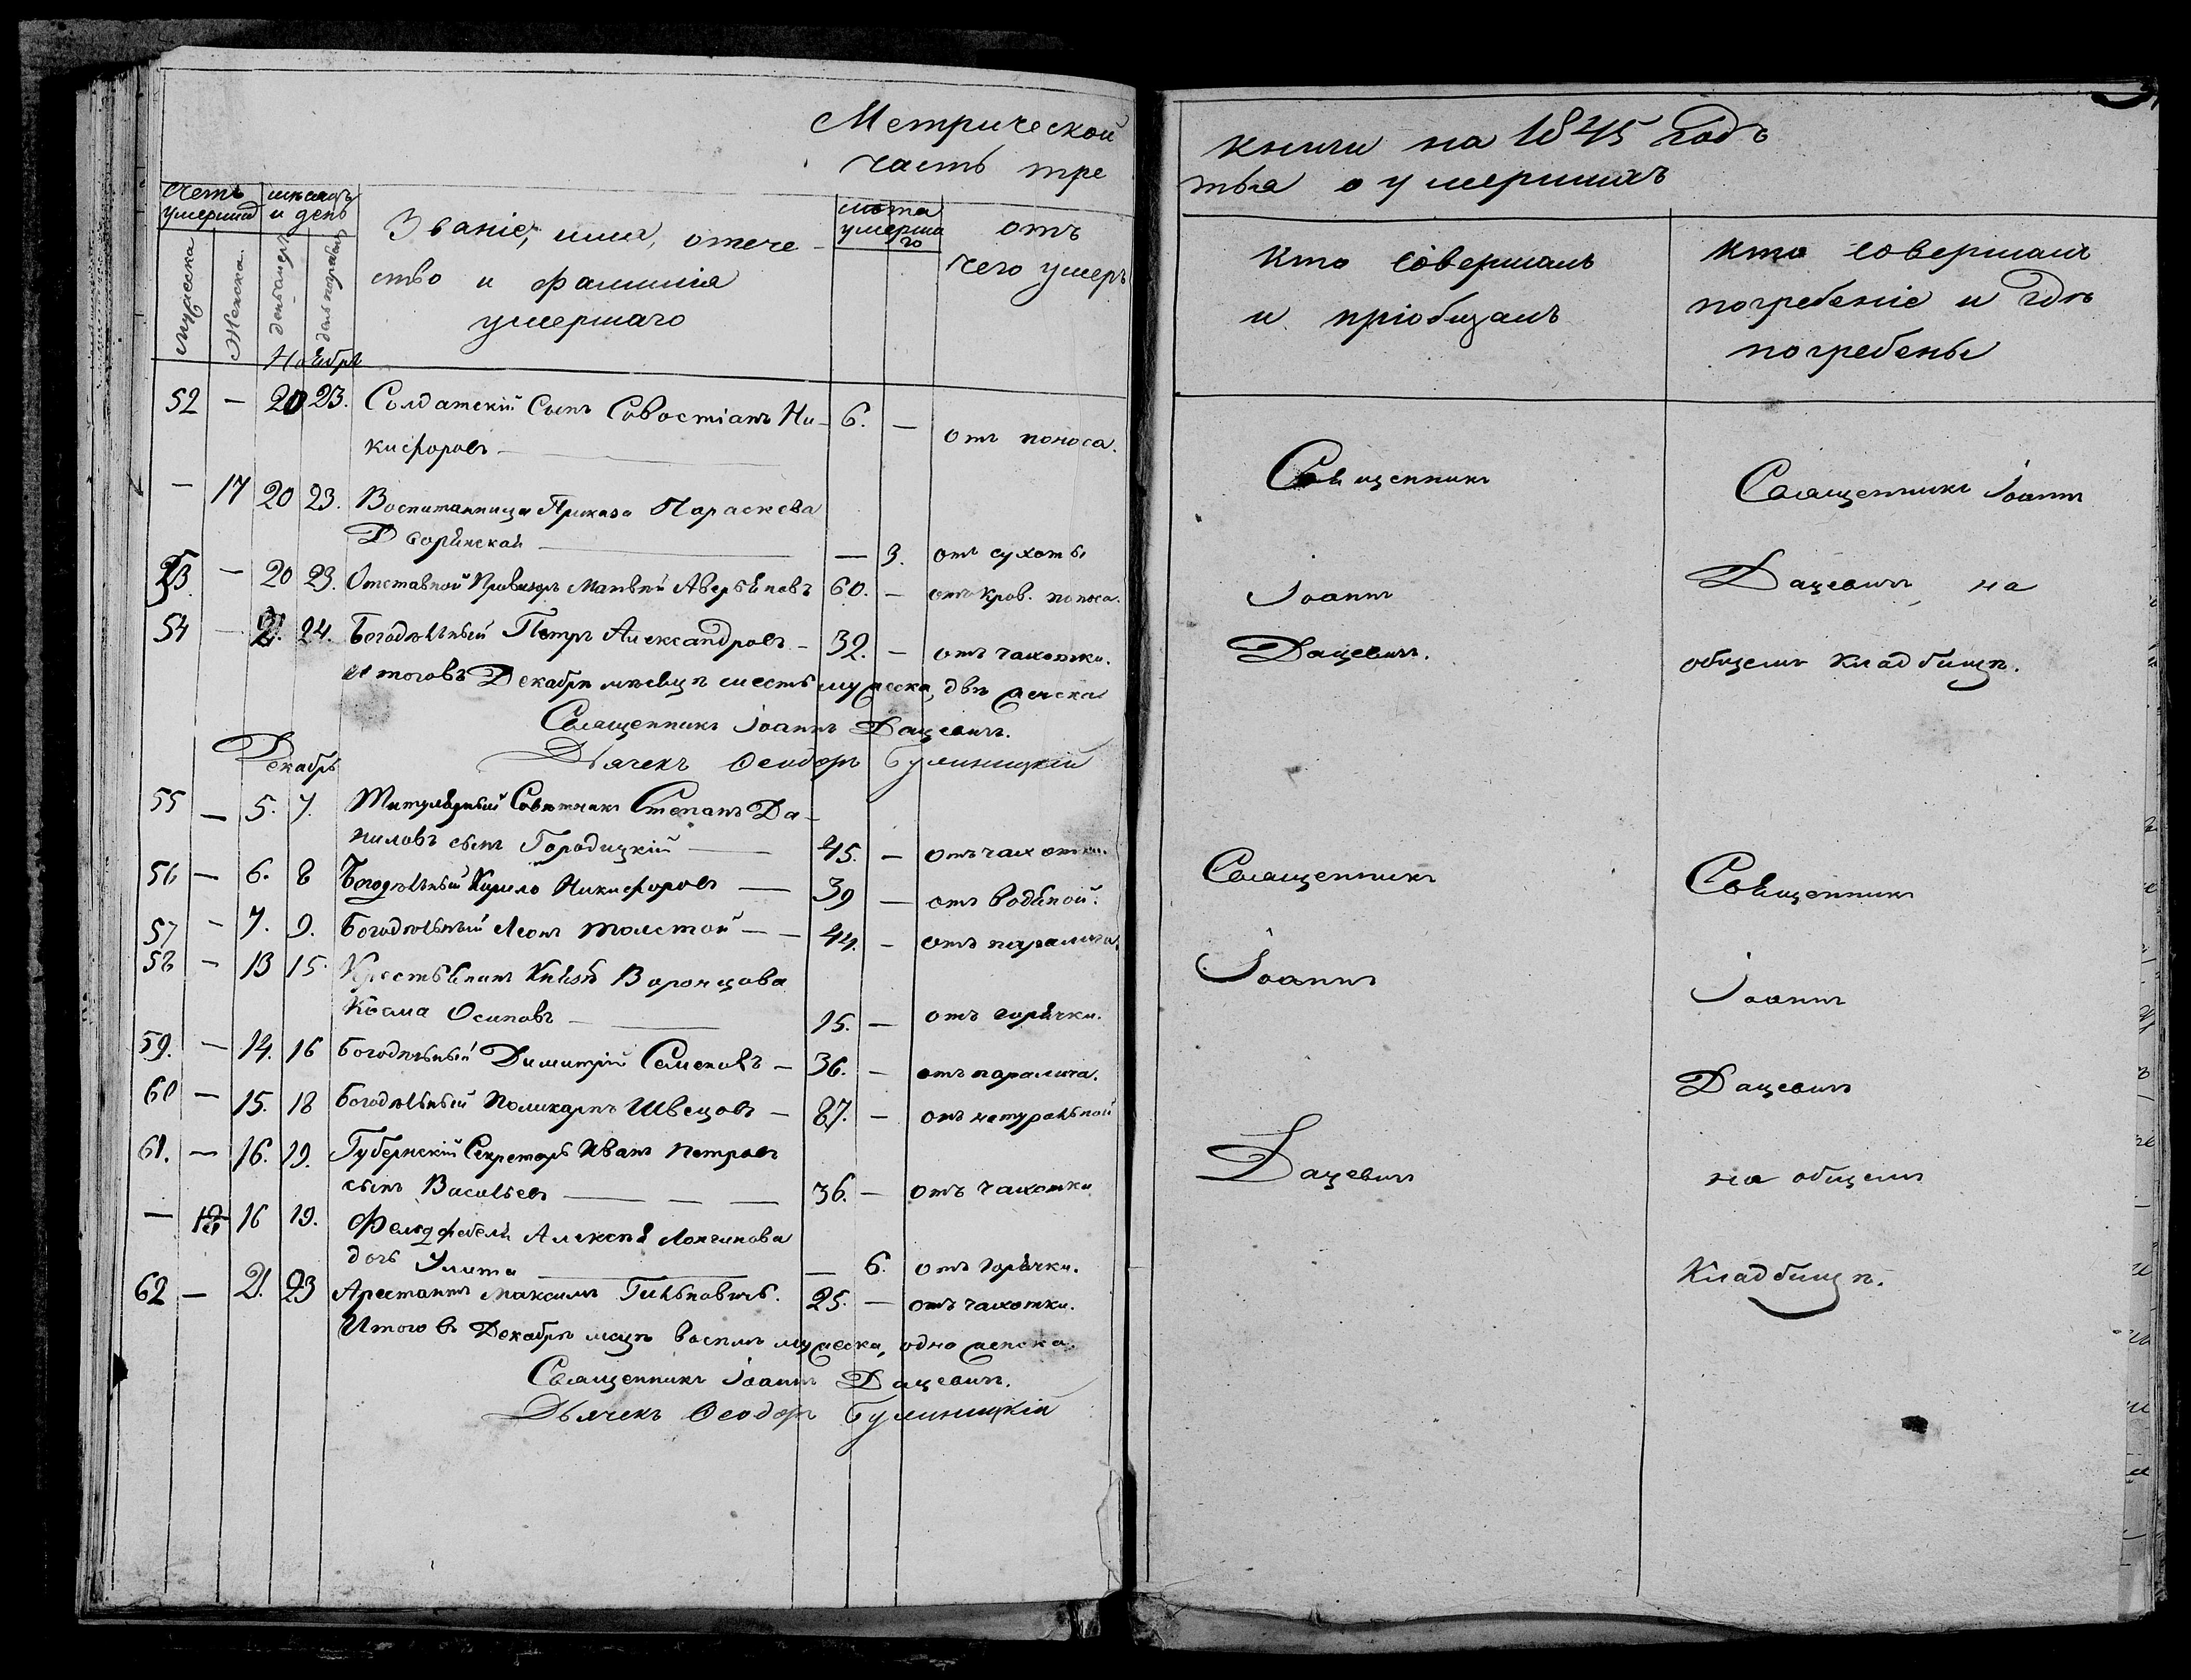 Метрической
часть тре
Счетъ умершихъ
мѣсяцъ и день
Званіе, имя, отече-
ство и фамилія
умершаго
лѣта умершаго
отъ
чего умеръ
мужеска
Женска
день смерти
день погребенія
Ноября
52 — 20 23. Солдатскій Сынъ Савостіанъ Ни- 6. — отъ поноса.
кифоровъ —
— 17 20 23. Воспитанница Приказа Параскева
Дворянская — — 9. отъ сухоты
53. — 20 23. Отставной Провизоръ Матвѣй Аверьяновъ 60. — отъ кров. поноса.
54 — 21. 24. Богодѣльный Петръ Александровъ — 32. — отъ чахотки.
Итого въ Декабрѣ мѣсяцѣ шесть мужеска, двѣ женска
Священникъ Іоаннъ Дацевичъ.
Дьячекъ Ѳеодоръ Булиницкій
Декабрь
55 — 5. 7. Титулярный Совѣтникъ Степанъ Да-
ниловъ сынъ Городицкій — 45. — отъ чахотки.
56 — 6. 8 Богодѣльный Кирило Никифоровъ — 39 — отъ водяной.
57 — 7. 9. Богодѣльный Леонъ Толстой — — 44. — отъ паралича.
58 — 13 15. Крестьянинъ Князя Воронцова
Козма Осиповъ — 15. — отъ горячки.
59. — 14. 16 Богодѣльный Димитрій Семеновъ — 36. — отъ паралича.
60 — 15. 18 Богодѣльный Поликарпъ Швецовъ — 87. — отъ натуральной
61. — 16. 19. Губернскій Секретарь Иванъ Петровъ
сынъ Васильевъ — — — 36. — отъ чахотки
— 18 16 19. Фельдфебеля Алексѣя Лонгинова
дочь Улита — — 6. отъ горячки.
62 — 21. 23 Арестантъ Максимъ 25. — отъ чахотки.
Итого въ Декабрѣ мцѣ восемь мужеска, одна женска.
Священникъ Іоаннъ Дацевичъ.
Дьячекъ Ѳеодоръ Булиницкій
книги на 1845 годъ
тья о умершихъ
Кто совершалъ
и пріобщалъ
Кто совершалъ
погребеніе и гдѣ
погребены
Священникъ
Іоаннъ
Дацевичъ.
Священникъ Іоаннъ
Дацевичъ, на
общемъ кладбищѣ.
Священникъ
Іоаннъ
Дацевичъ
Священникъ
Іоаннъ
Дацевичъ
на общемъ
Кладбищѣ.